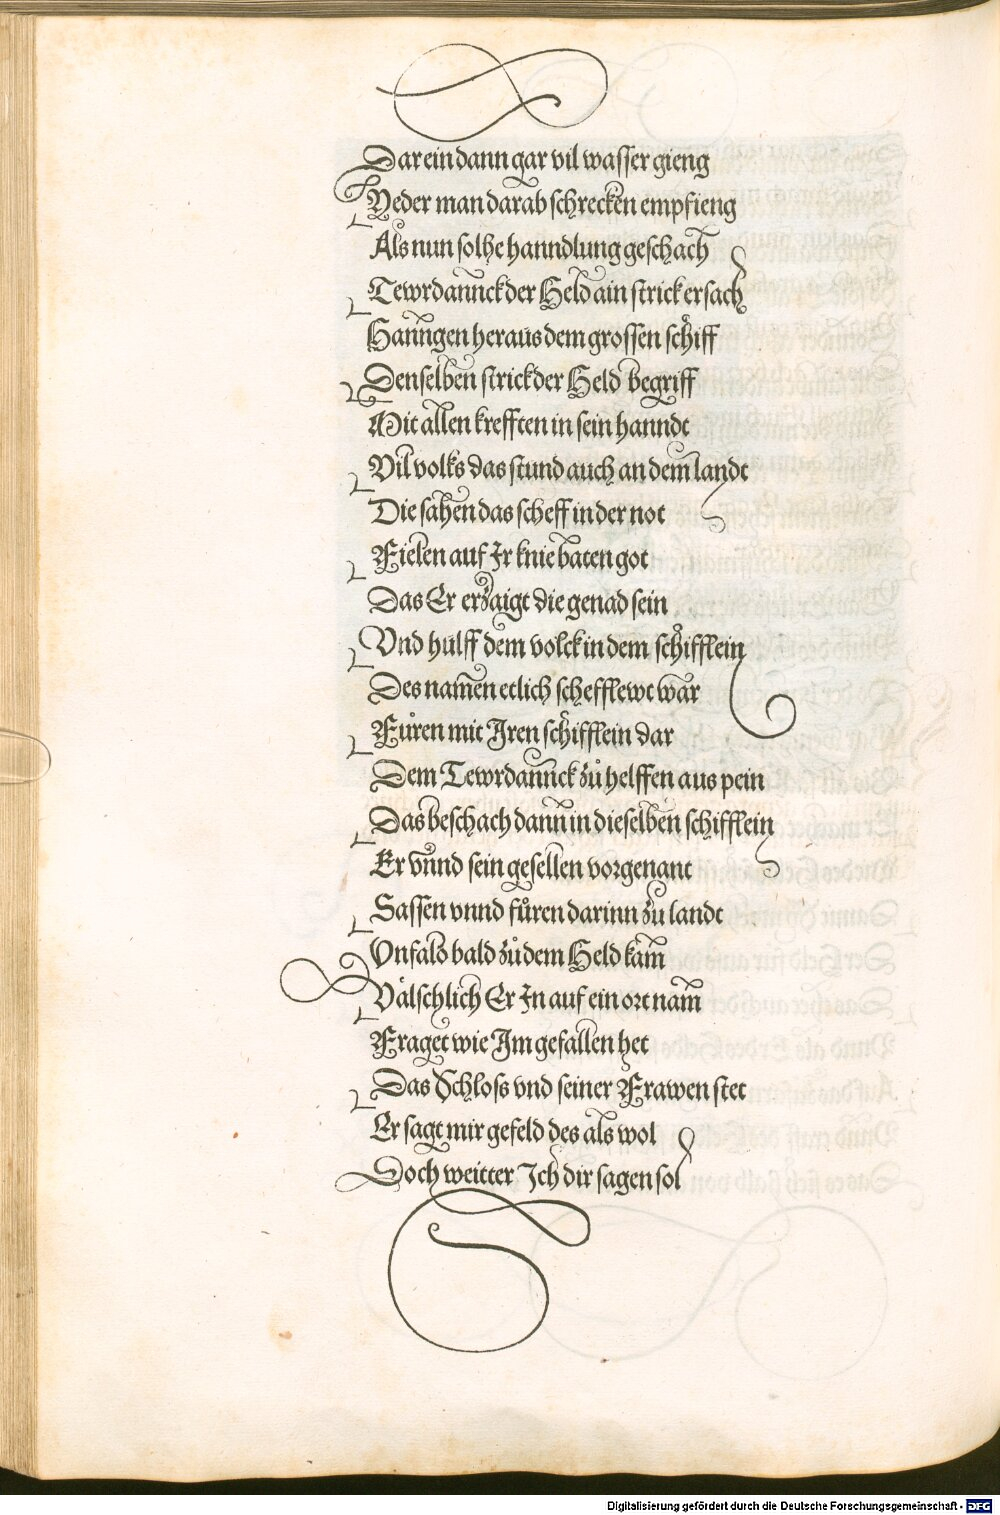 Darein dann gar vil wasser gieng
Yeder man darab schrecken empfieng
Als nun solhe hanndlung geschach
Tewrdannck der Held ain strick ersach
Hanngen heraus dem grossen schiff
Denselben strick der Held begriff
Mit allen krefften in sein hanndt
Vil volks das stund auch an dem landt
Die sahen das scheff in der not
Fielen auf Ir knie baten got
Das Er erzaigt die genad sein
Vnd hulff dem volck in dem schifflein
Des namen etlich schefflewt war
Fůren mit Iren schifflein dar
Dem Tewrdannck zů helffen aus pein
Das beschach dann in dieselben schifflein
Er vnnd sein gesellen vorgenant
Sassen vnnd fůren darinn zu landt
Vnfalo bald zů dem Held kam
Välschlich Er In auf ein ort nam
Fraget wie Im gefallen het
Das Schloss vnd seiner Frawen stet
Er sagt mir gefeld des als wol
Doch weitter Ich dir sagen sol
Digitalisierung gefördert durch die Deutsche Forschungsgemeinschaft - DFG